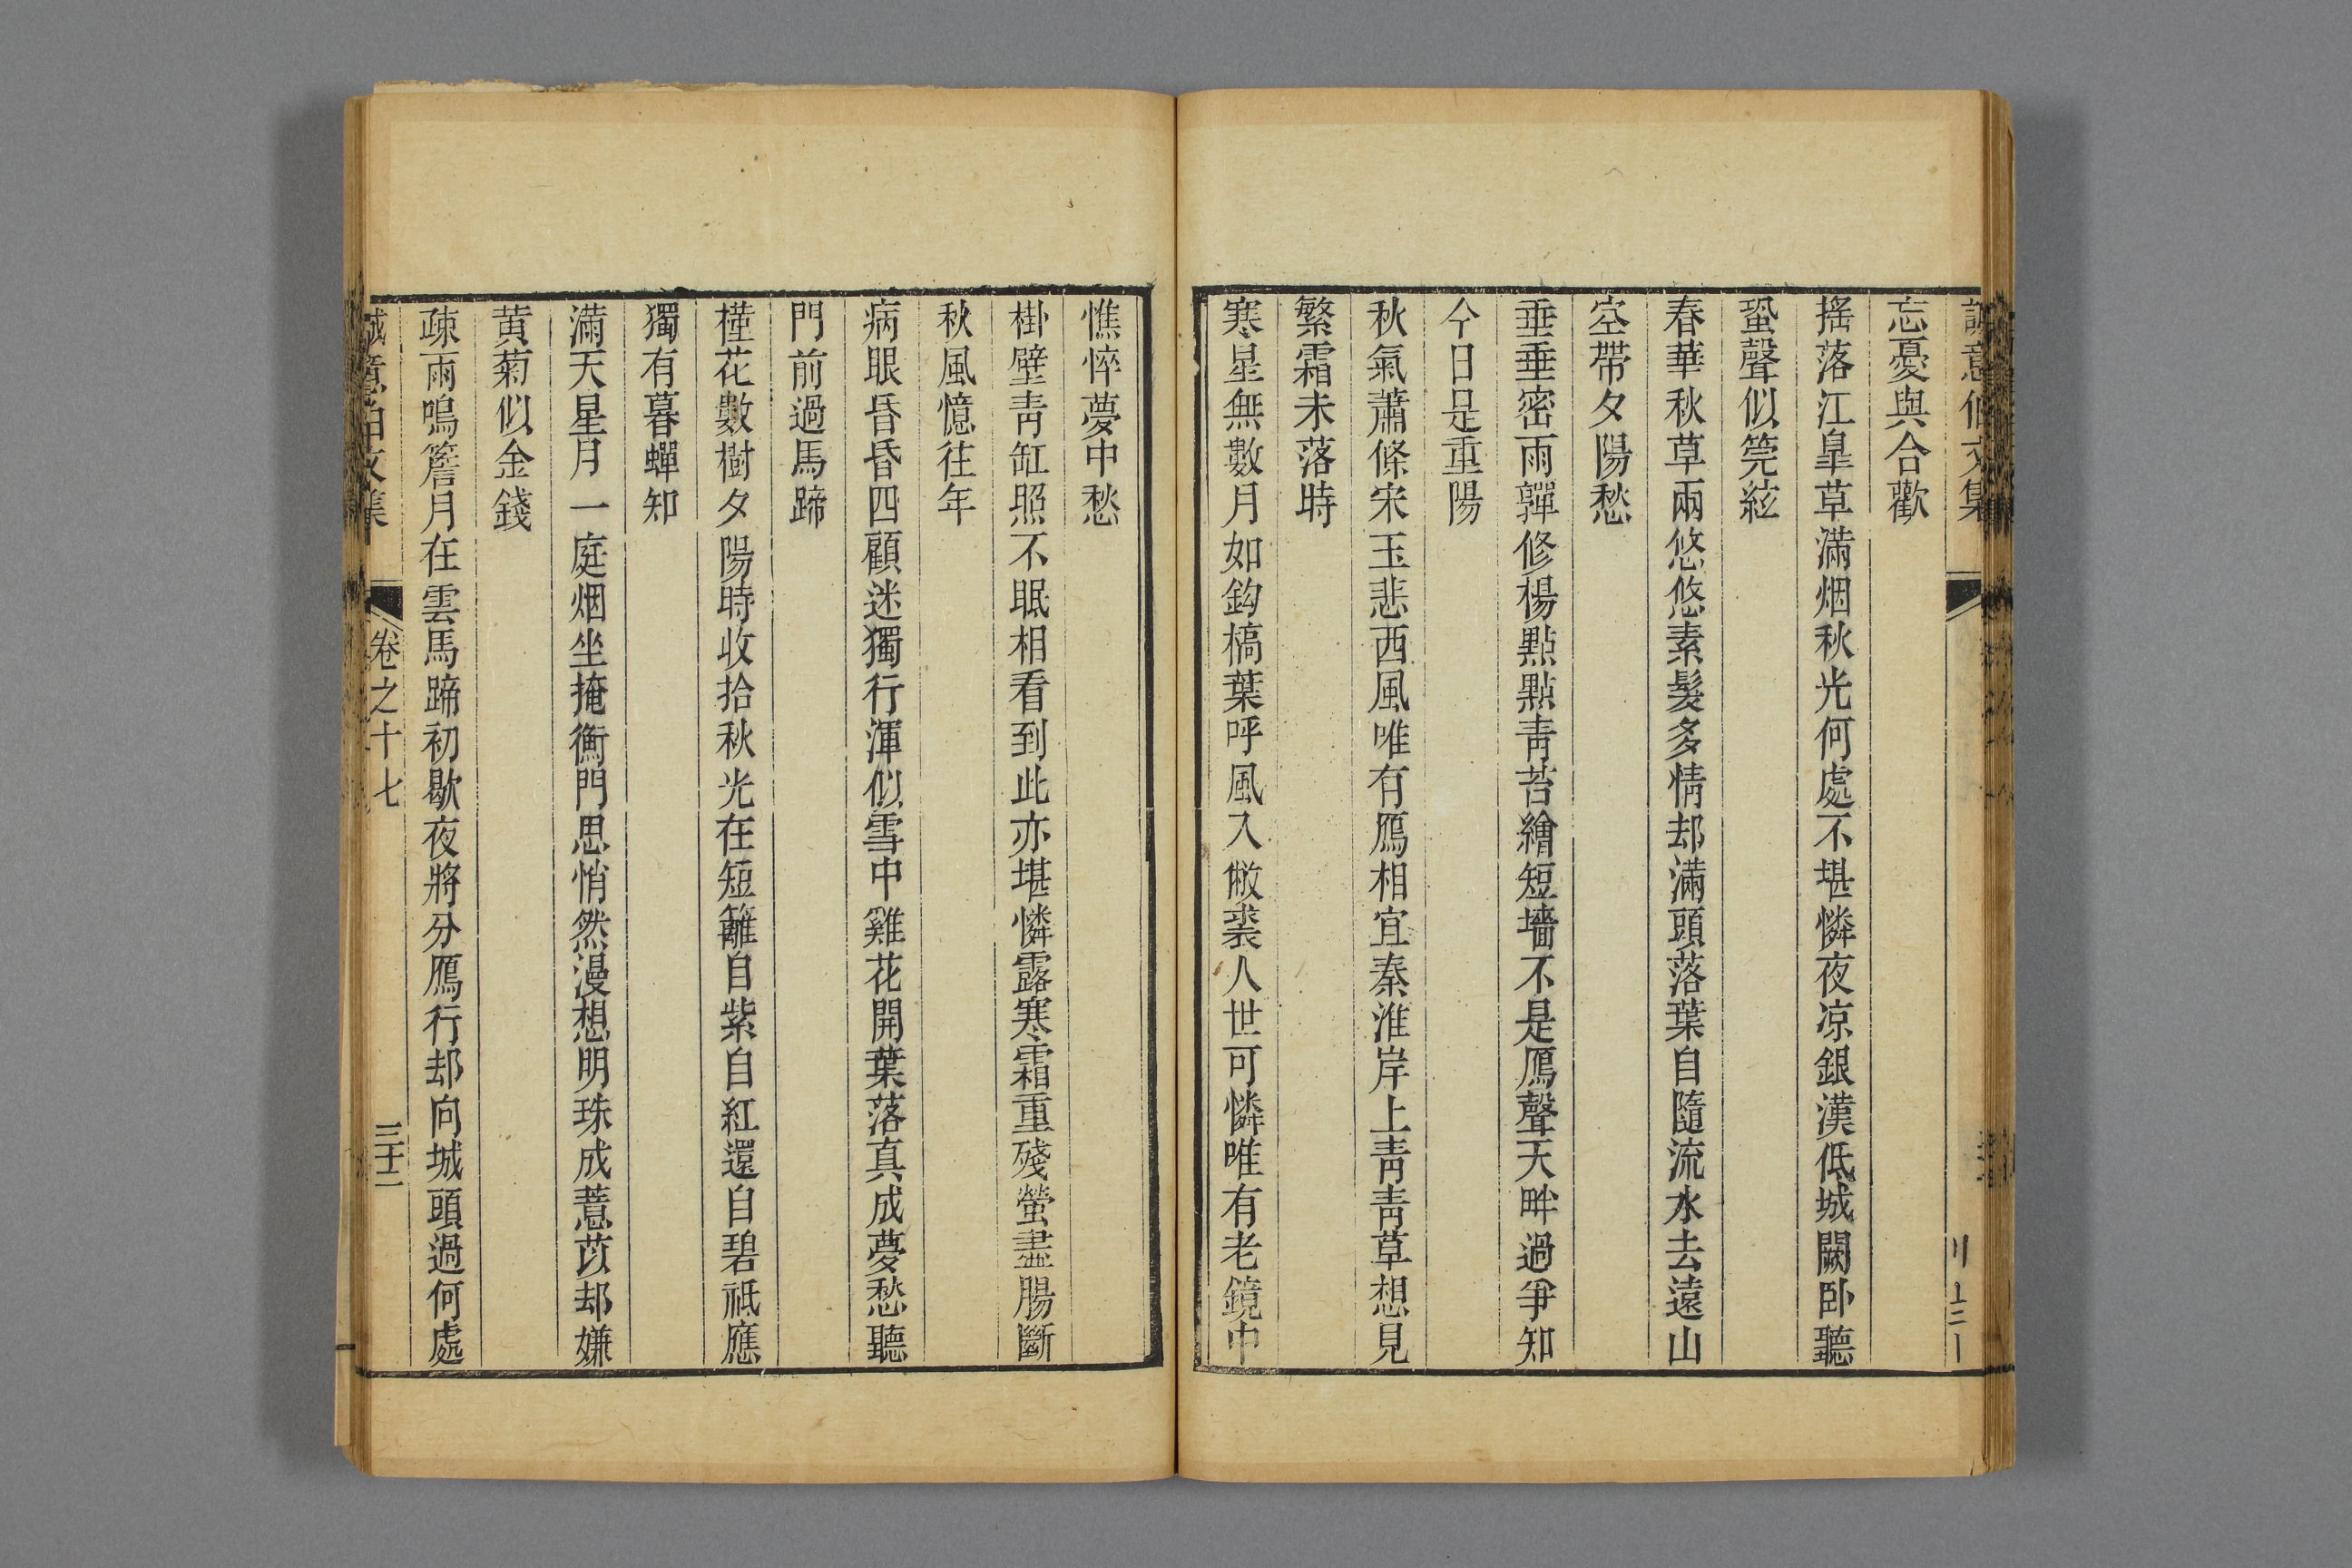 誠意伯文集
忘憂與合歡
搖落江皐草滿烟秋光何處不堪憐夜凉銀漢低城闕卧聽
蛩聲似筦絃
春華秋草兩悠悠素髮多情却滿頭落葉自隨流水去遠山
空帶夕陽愁
垂垂密雨嚲修楊點點青苔繪短墻不是鴈聲天畔過爭知
今日是重陽
秋氣蕭條宋玉悲西風唯有鴈相宜秦淮岸上青青草想見
繁霜未落時
寒星無數月如鈎槁葉呼風入敝裘人世可憐唯有老鏡中
憔悴夢中愁
掛壁青缸照不眠相看到此亦堪憐露寒霜重殘螢盡腸斷
秋風憶往年
病眼昏昏四顧迷獨行渾似雪中雞花開葉落真成夢愁聽
門前過馬蹄
槿花數樹夕陽時收拾秋光在短籬自紫自紅還自碧祗應
獨有暮蟬知
滿天星月一庭烟坐掩衡門思悄然漫想明珠成薏苡却嫌
黄菊似金錢
疎雨鳴簷月在雲馬蹄初歇夜將分鴈行却向城頭過何處
誠意伯文集 卷之十七 三十二